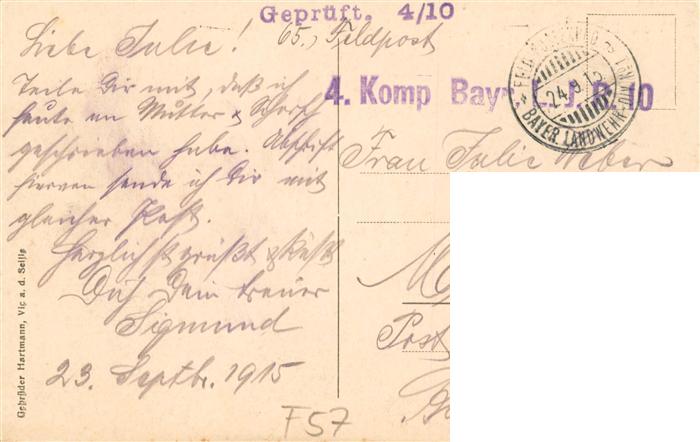 Geprüft. 4/10
65., Feldpost
4. Komp Bayr. L. J. R. 10
24. 9. 15
BAYER LANDWEHR-DIV.
Liebe Julie!
Teile Dir mit, daß ich
heute an Mutter &
geschrieben habe. Abschrift
hiervon sende ich Dir mit
gleicher Post.
Herzlichst grüßt & küßt
Dich Dein treuer
Sigmund
23. Septbr. 1915
Frau Julie Weber
Post
Gebrüder Hartmann, Vic a. d. Seille
F57